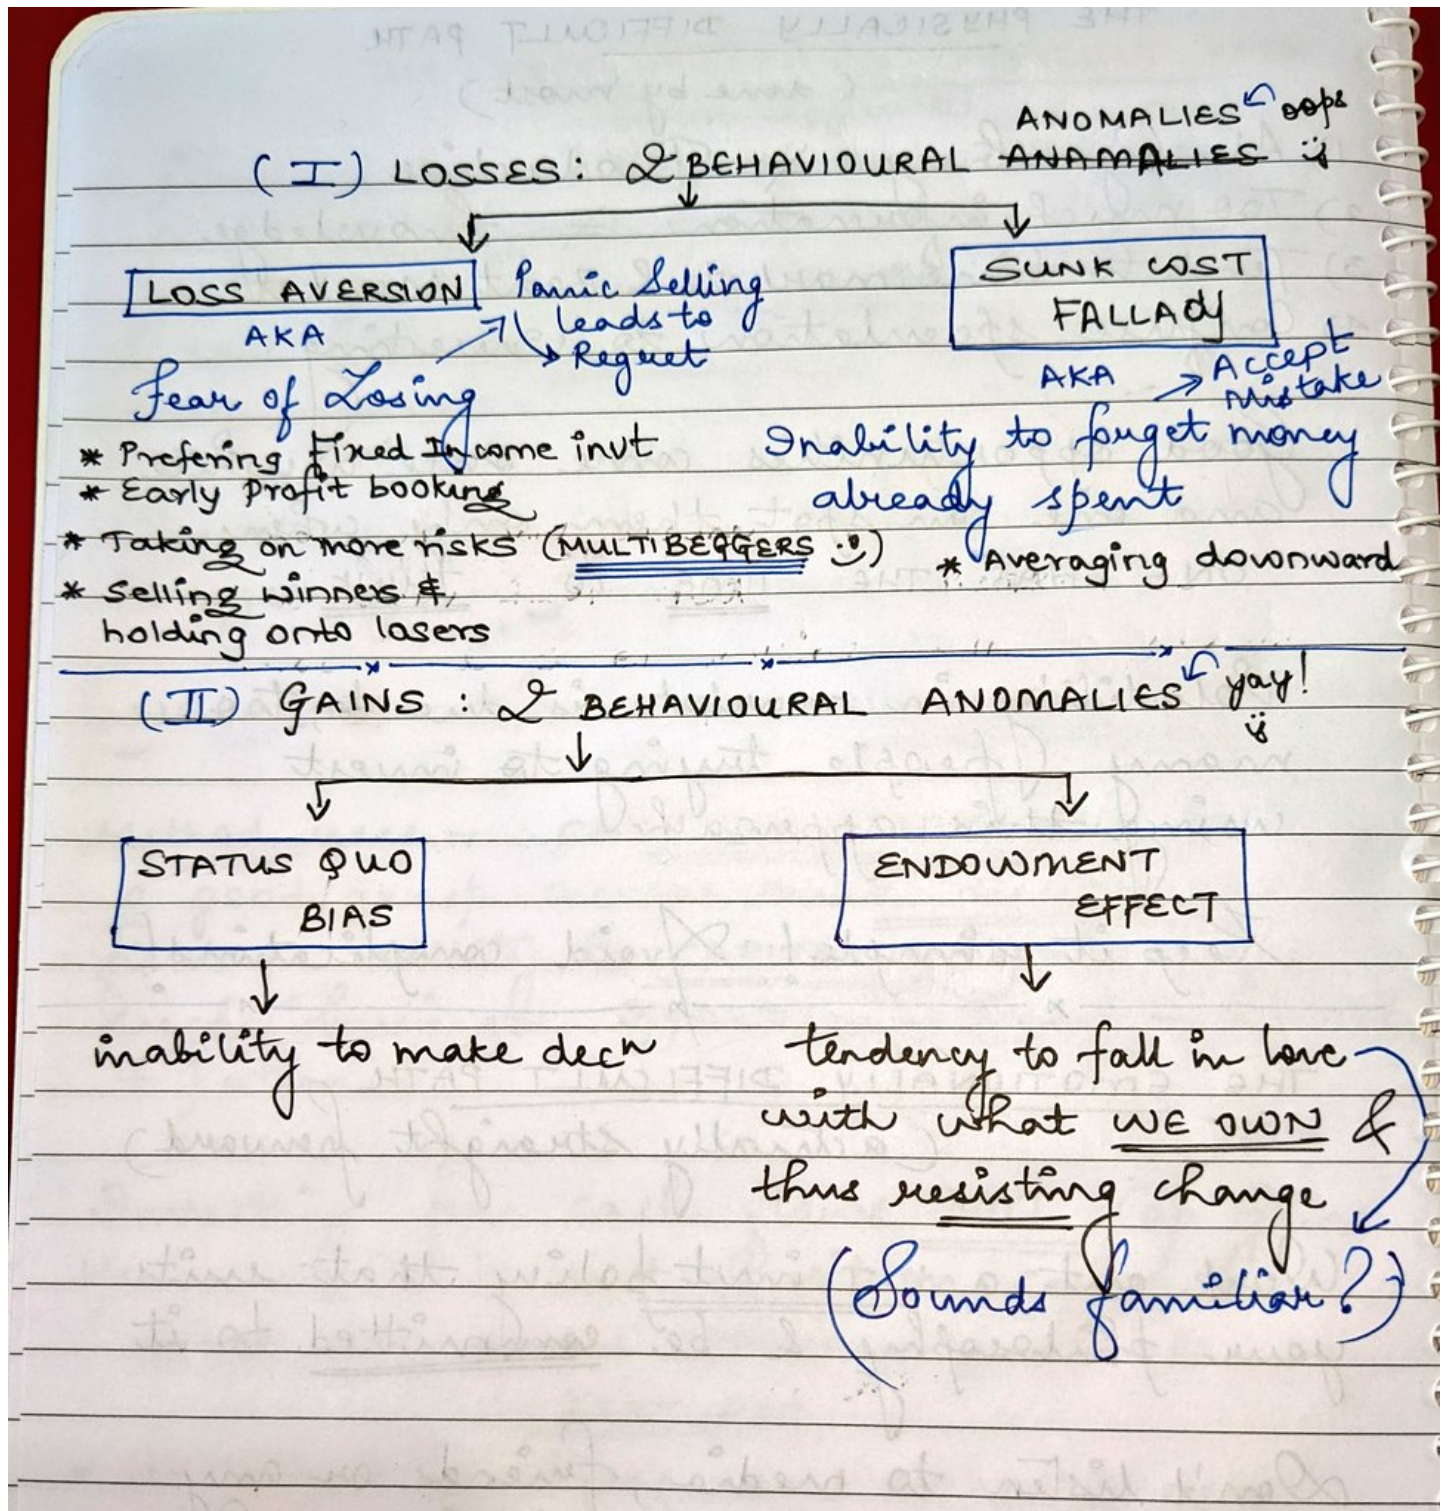 ANOMALIES oops
(I) LOSSES: 2 BEHAVIOURAL ANAMALIES
LOSS AVERSION
AKA
Fear of Losing
Panic Selling
leads to
Regret
* Prefering Fixed Income invt
* Early Profit booking
* Taking on more risks (MULTIBEGGERS)
* Selling winners &
holding onto losers
SUNK COST
FALLACY
AKA
Accept
Mistake
Inability to forget money
already spent
* Averaging downward
(II) GAINS : 2 BEHAVIOURAL ANOMALIES yay!
STATUS QUO
BIAS
inability to make decn
ENDOWMENT
EFFECT
tendency to fall in love
with what WE OWN &
thus resisting change
(Sounds familiar?)